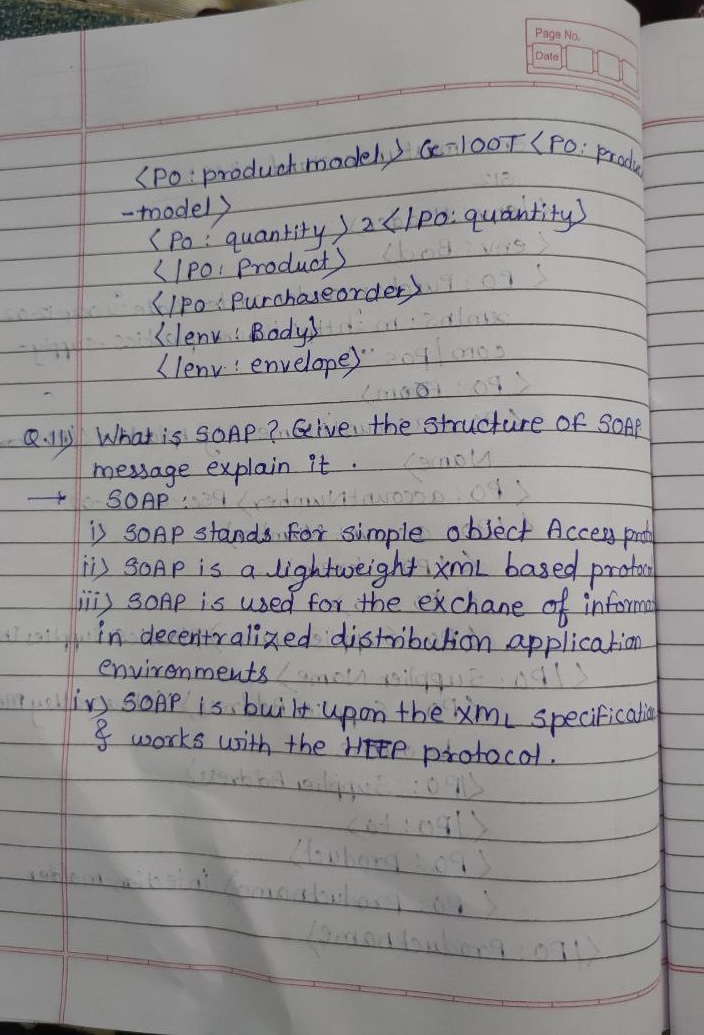 Page No.
Date
<PO : product model> G-100T <PO : produ
-model>
<Po : quantity> 2 </po: quantity>
</PO: Product>
</PO : Purchaseorder>
</env : Body>
</env : envelope>
Q.11) What is SOAP? Give the structure of SOAP
message explain it .
→ SOAP :
i) SOAP stands for simple object Access proto
ii) SOAP is a lightweight xmL based protoco
iii) SOAP is used for the exchane of informa
in decentralized distribution application
environments
iv) SOAP is built upon the xmL specificatio
& works with the HTTP protocol.